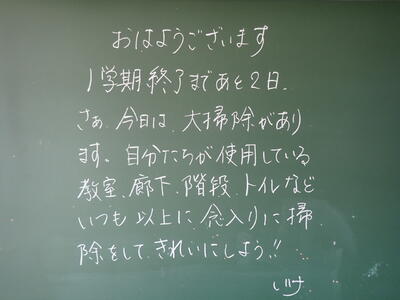 おはようございます
1学期終了まであと2日.
さぁ 今日は、大掃除があり
ます。自分たちが使用している
教室、廊下、階段、トイルなど
いつも以上に、念入りに掃
除をして、きれいにしよう!!
いけ